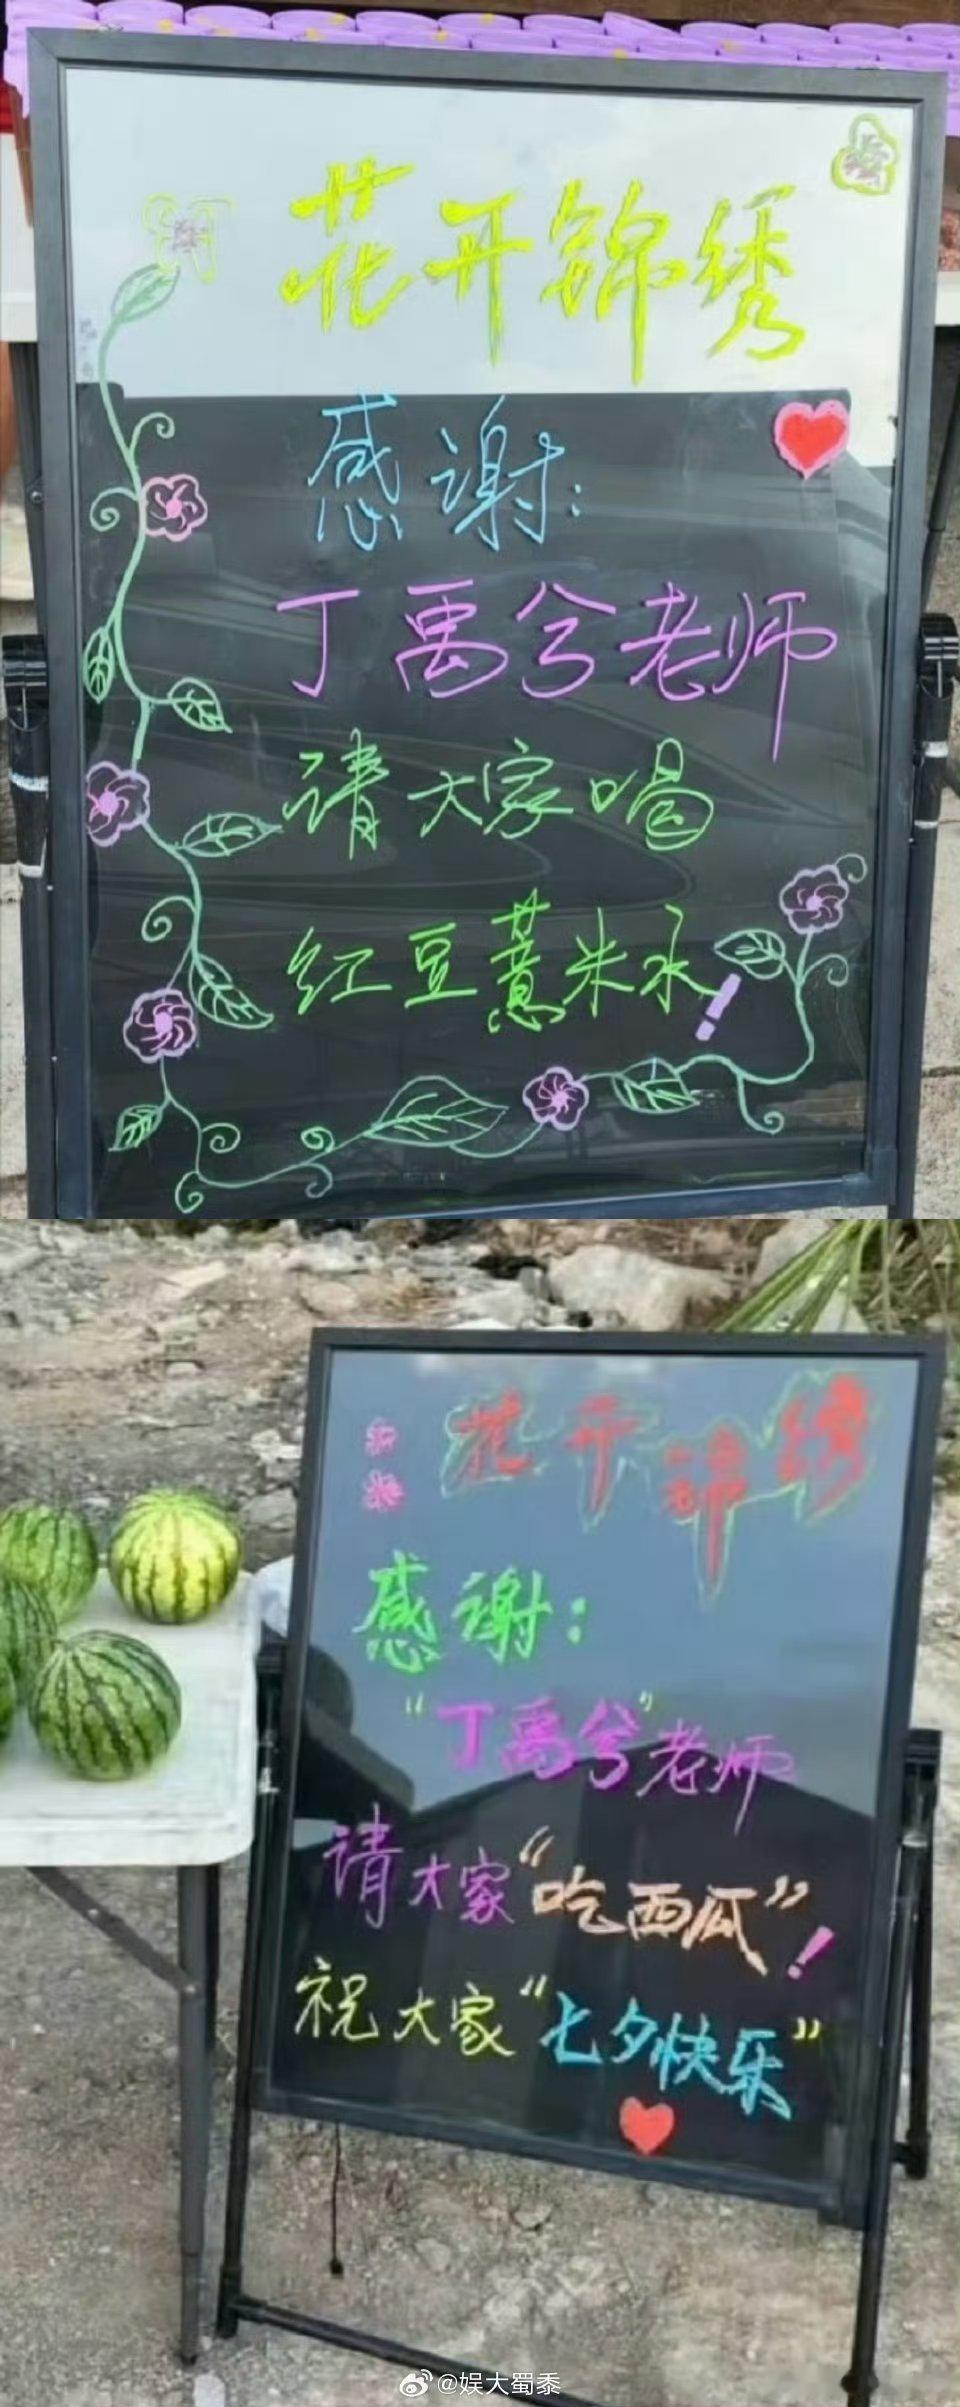 花开锦绣
感谢:
丁禹兮老师
请大家喝
红豆薏米水!
花开锦绣
感谢:
“丁禹兮”老师
请大家“吃西瓜”!
祝大家“七夕快乐”
@娱大蜀黍